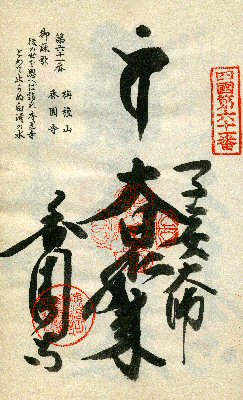 四國第六十一番
子安大師
大日如来
香園寺
第六十一番
栴檀山
香園寺
御詠歌
後の世を思へば詣れ香園寺
とめて止まらぬ白滝の水